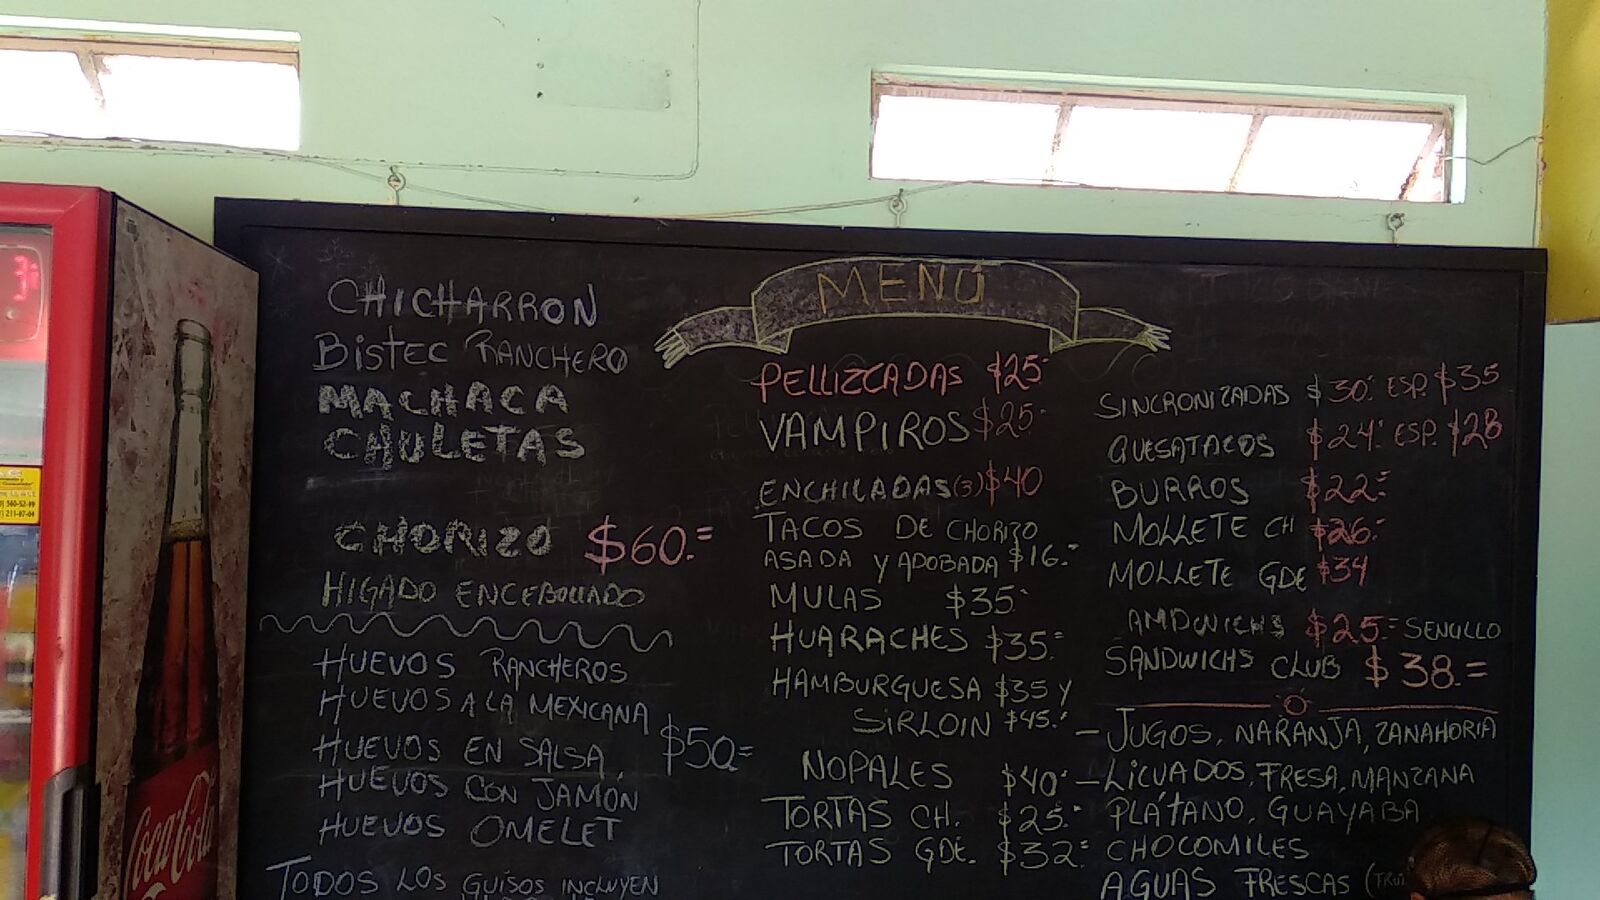 MENÚ
CHICHARRON
BISTEC RANCHERO
MACHACA
CHULETAS
CHORIZO $60.=
HIGADO ENCEBOLLADO
HUEVOS RANCHEROS
HUEVOS A LA MEXICANA
HUEVOS EN SALSA $50=
HUEVOS CON JAMÓN
HUEVOS OMELET
TODOS LOS GUISOS INCLUYEN
PELLIZCADAS $25.-
VAMPIROS $25.-
ENCHILADAS (3) $40
TACOS DE CHORIZO
ASADA Y ADOBADA $16.-
MULAS $35.-
HUARACHES $35.=
HAMBURGUESA $35 Y
SIRLOIN $45.-
NOPALES $40.-
TORTAS CH. $25.-
TORTAS GDE. $32.=
SINCRONIZADAS $30.- ESP. $35
QUESATACOS $24.- ESP. $28
BURROS $22.=
MOLLETE CH $26.-
MOLLETE GDE $34
AMDWICHS $25.= SENCILLO
SANDWICHS CLUB $38.=
- JUGOS, NARANJA, ZANAHORIA
- LICUADOS, FRESA, MANZANA
PLÁTANO, GUAYABA
CHOCOMILES
AGUAS FRESCAS
Coca-Cola